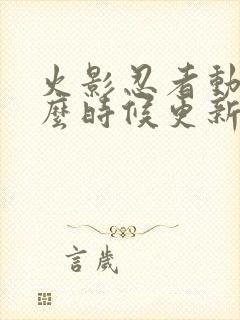 火影忍者動
麼時候更新
言歲